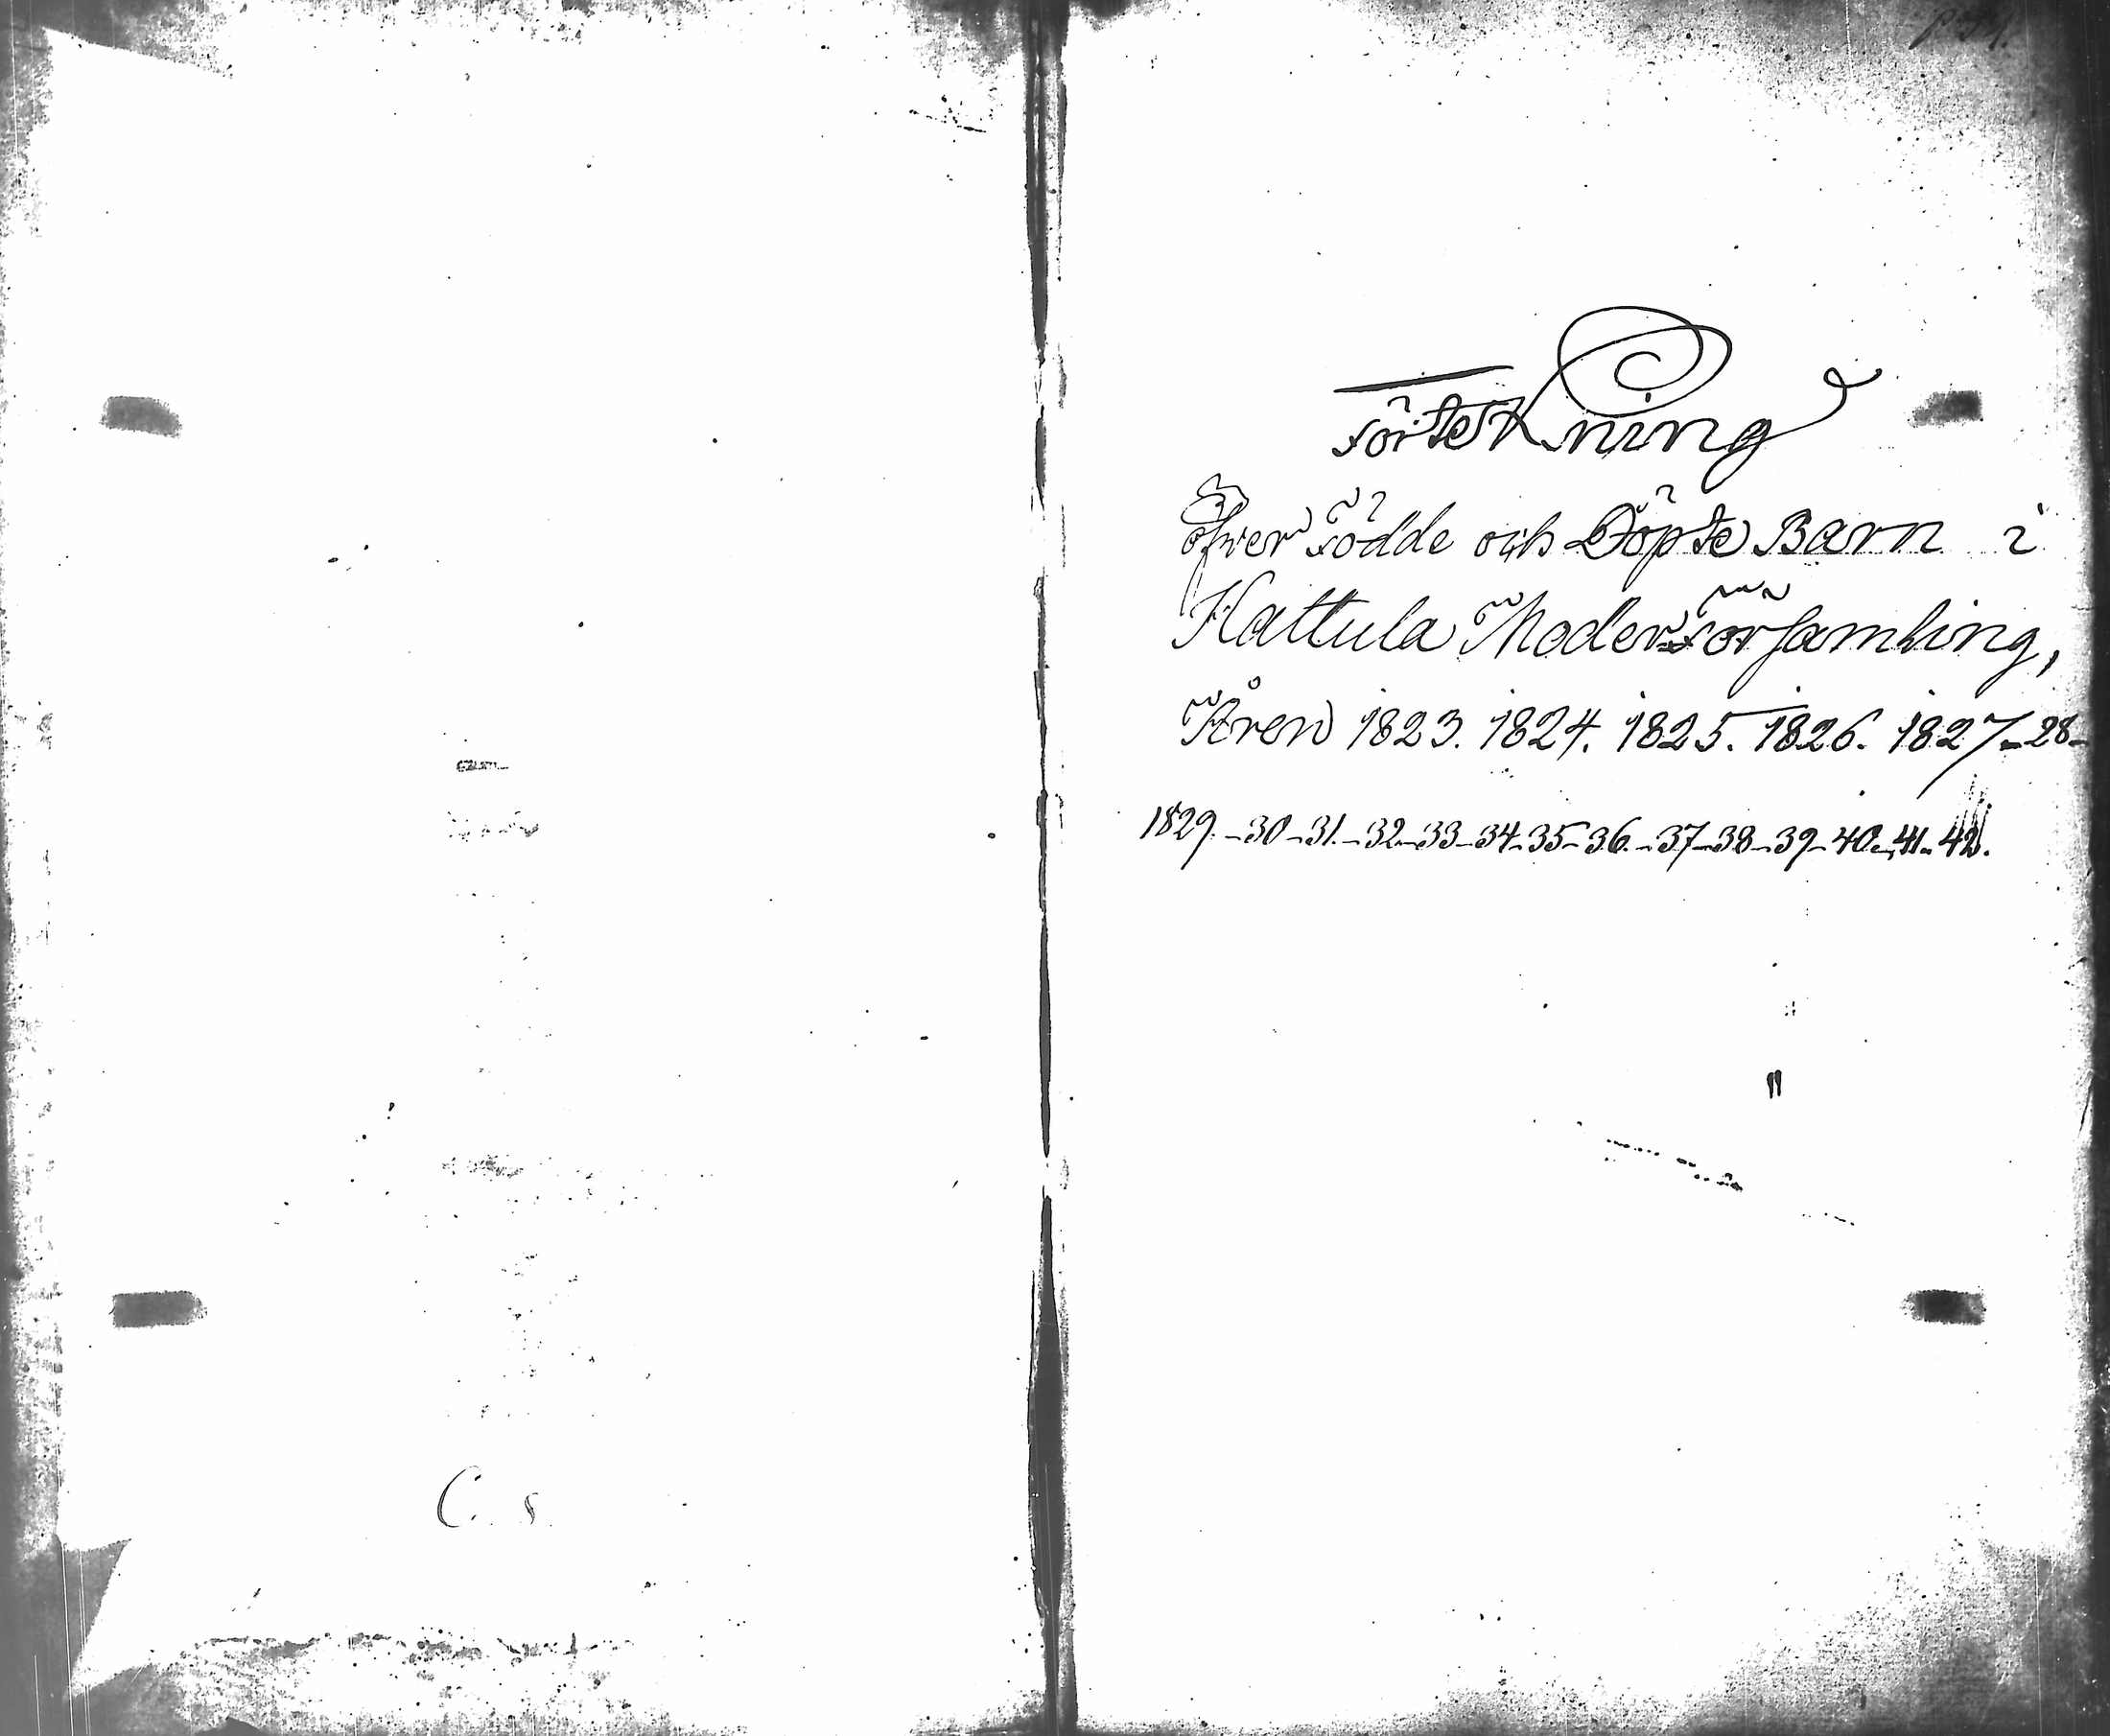 C. s
FörteKning
öfwer Födde och Döpte Barn i
Hattula ModerFörsamling,
Åren 1823. 1824. 1825. 1826. 1827-28-
1829.-30-31.-32-33-34-35-36.-37-38-39-40-41-42.